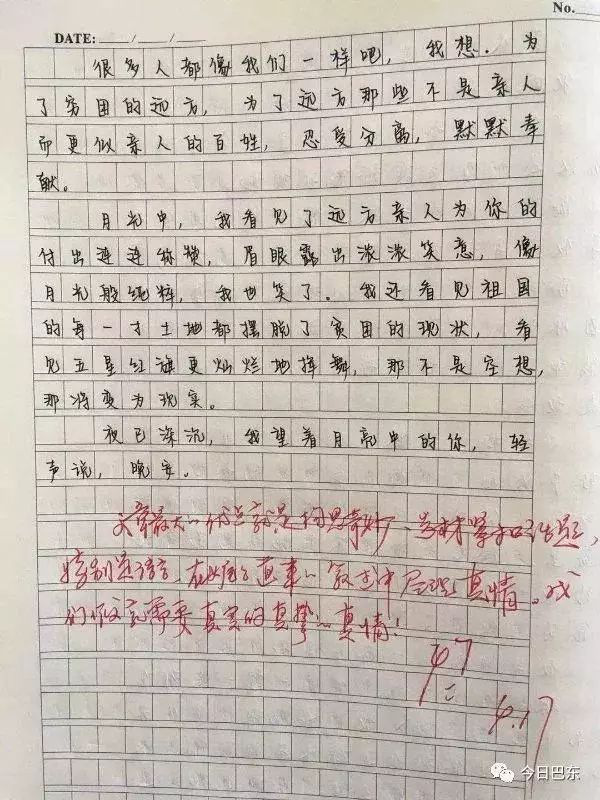 No.
DATE: / /
很多人都像我们一样吧，我想．为
了穷困的远方，为了远方那些不是亲人
而更似亲人的百姓，忍受分离，默默奉
献。
月光中，我看见了远方亲人为你的
付出连连称赞，眉眼露出浓浓笑意，像
月光般纯粹，我也笑了。我还看见祖国
的每一寸土地都摆脱了贫困的现状，看
见五星红旗更灿烂地挥舞，那不是空想，
那将变为现实。
夜已深沉，我望着月亮中的你，轻
声说，晚安。
文章最大优点就是构思奇妙
特别是语言 在 真情。我
们 需要真实的真挚的真情！
47
4.17
今日巴东